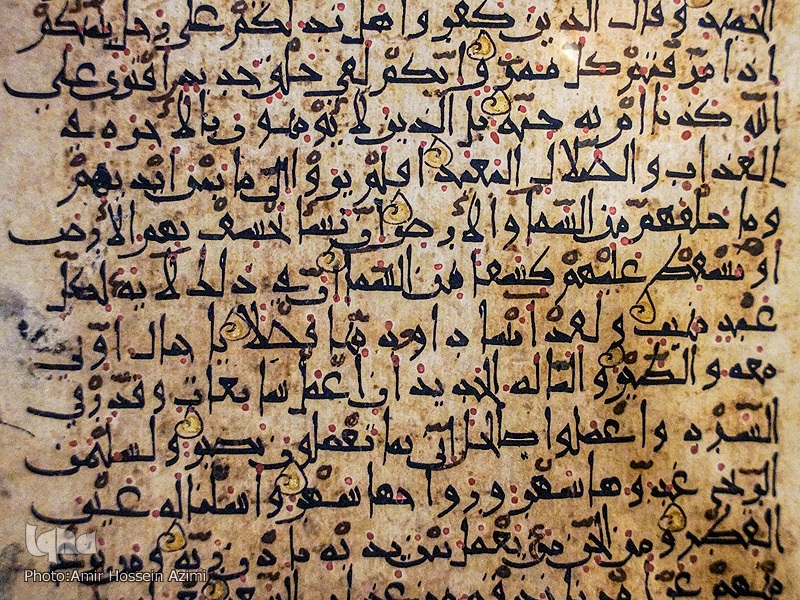 الحميد وقال الذين كفروا هل ندلكم على رجل ينبئكم
اذا مزقتم كل ممزق انكم لفي خلق جديد افترى على
الله كذبا ام به جنة بل الذين لا يؤمنون بالاخرة في
العذاب والضلال البعيد افلم يروا الى ما بين ايديهم
وما خلفهم من السما والارض ان نشا نخسف بهم الارض
او نسقط عليهم كسفا من السما ان في ذلك لاية لكل
عبد منيب ولقد اتينا داود منا فضلا يا جبال اوبي
معه والطير والنا له الحديد ان اعمل سابغات وقدر في
السرد واعملوا صالحا اني بما تعملون بصير ولسليمن
الريح غدوها شهر ورواحها شهر واسلنا له عين
القطر ومن الجن من يعمل بين يديه باذن ربه ومن يزغ
Photo:Amir Hossein Azimi